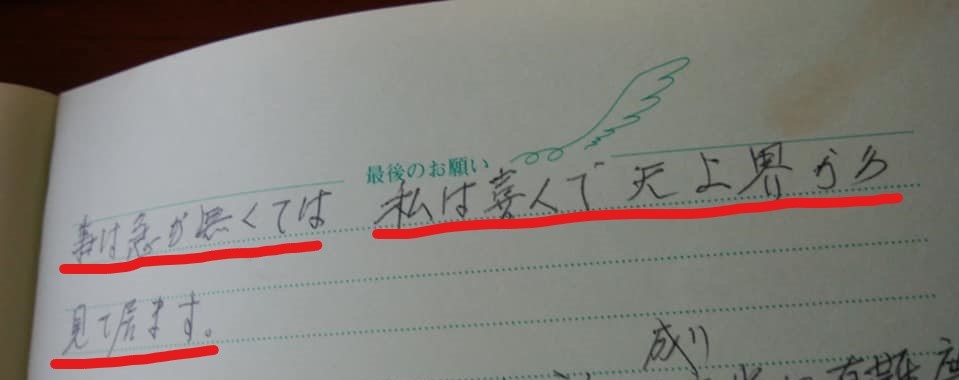 最後のお願い
事は急が無くては 私は喜んで天上界から
見て居ます。
成り